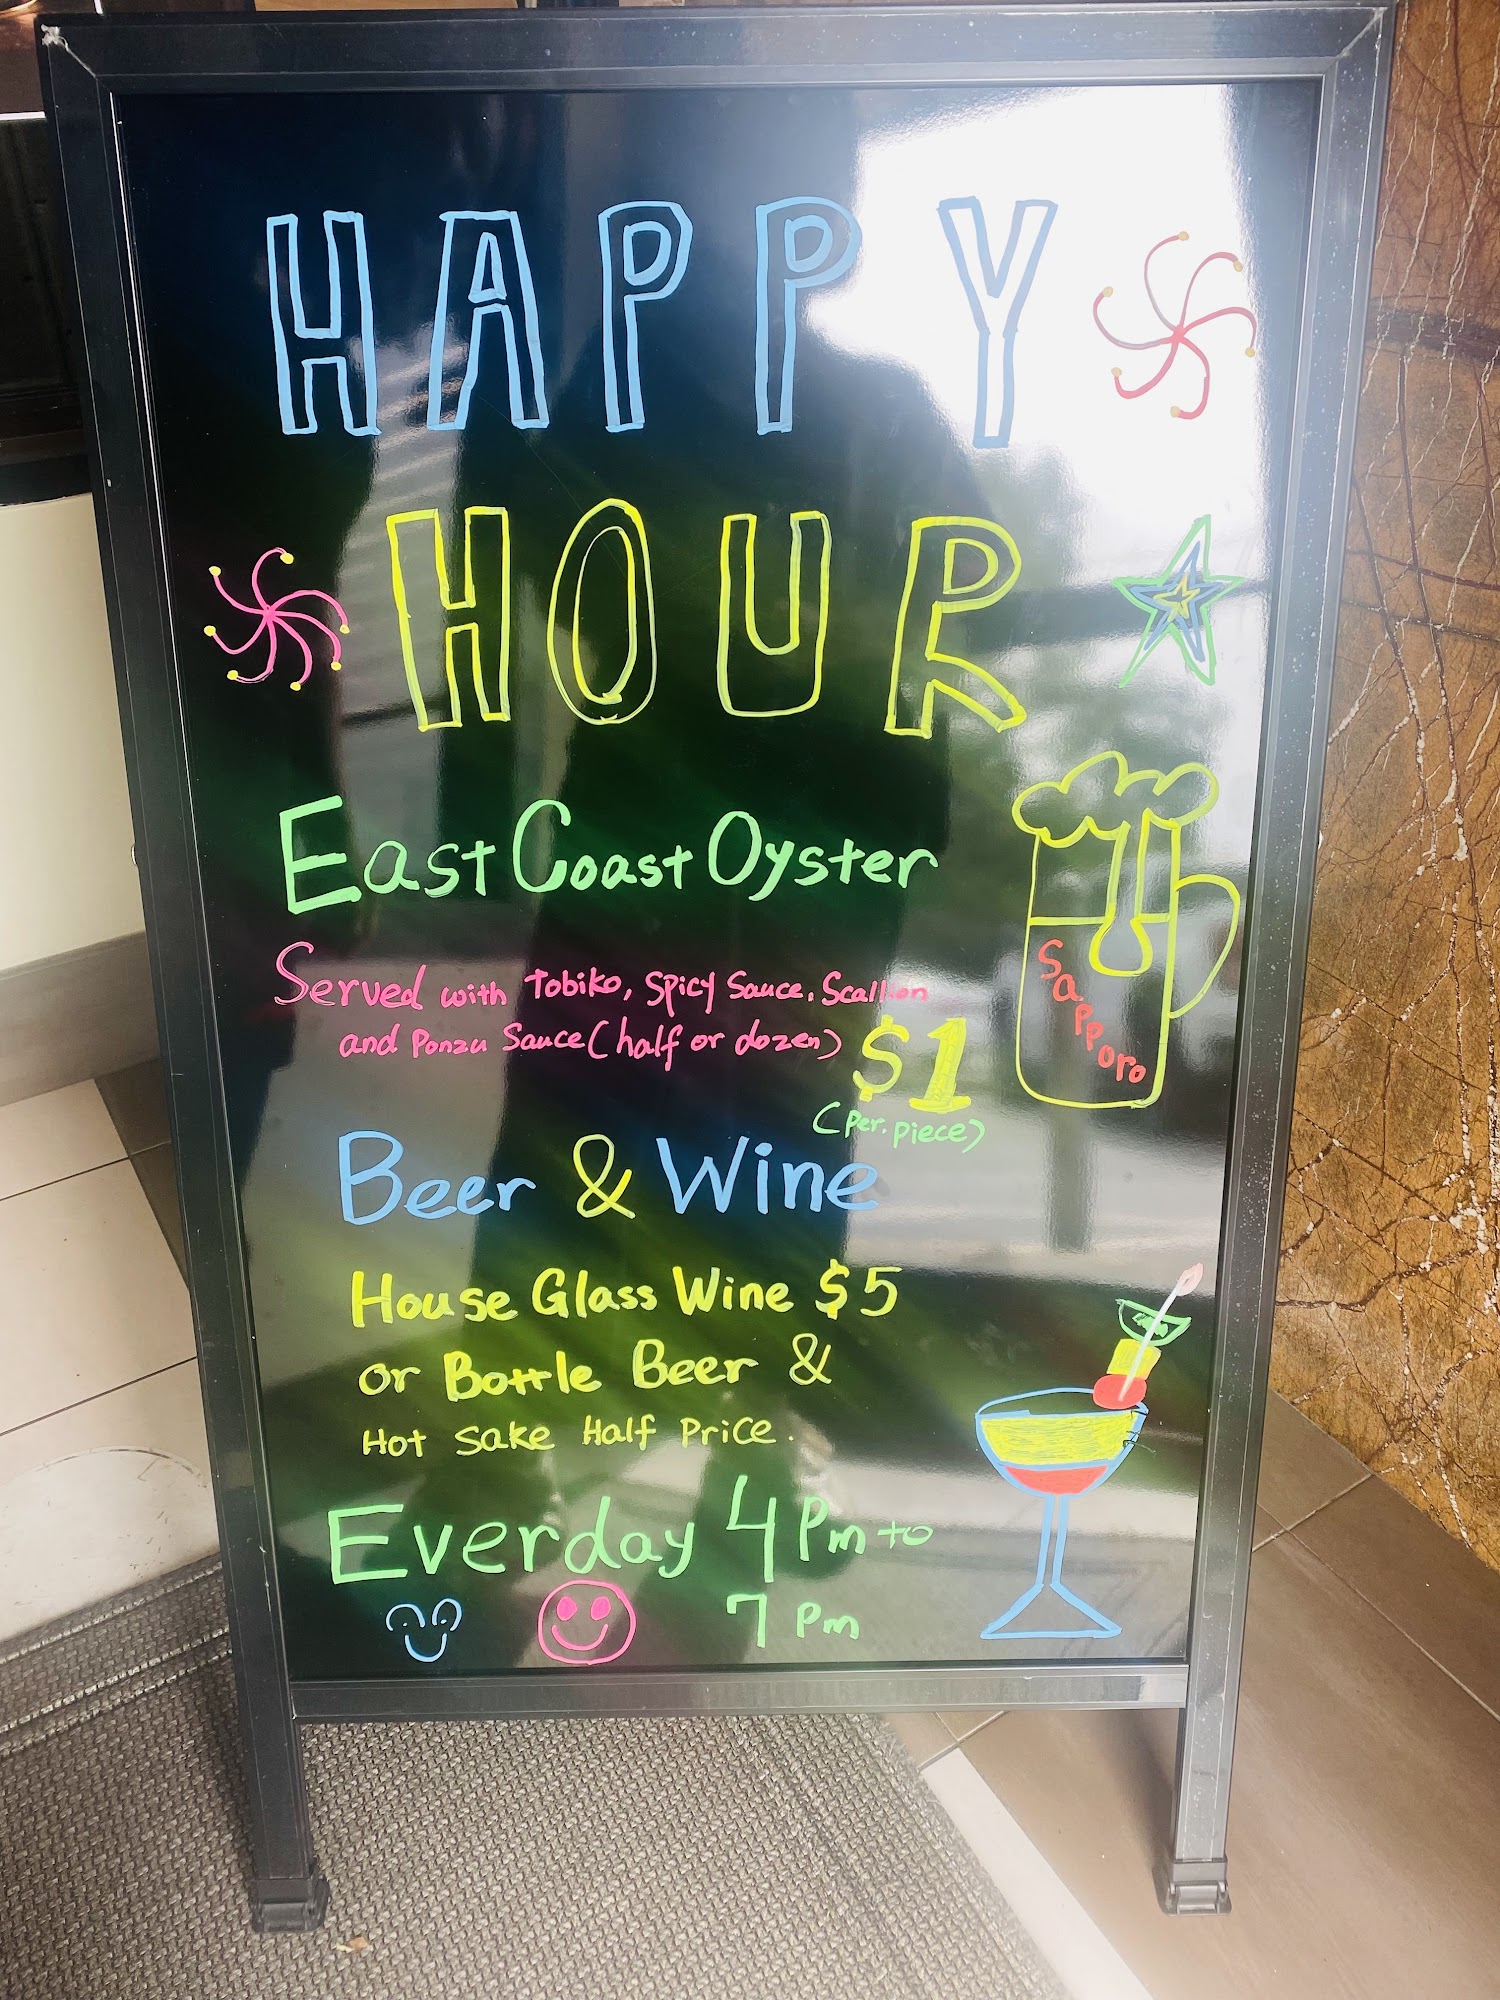 HAPPY
HOUR
East Coast Oyster
Served with Tobiko, Spicy Sauce, Scallion
and Ponzu Sauce (half or dozen)
$1
(per. piece)
Sapporo
Beer & Wine
House Glass Wine $5
or Bottle Beer &
Hot Sake Half Price.
Everday 4 Pm to
7 Pm